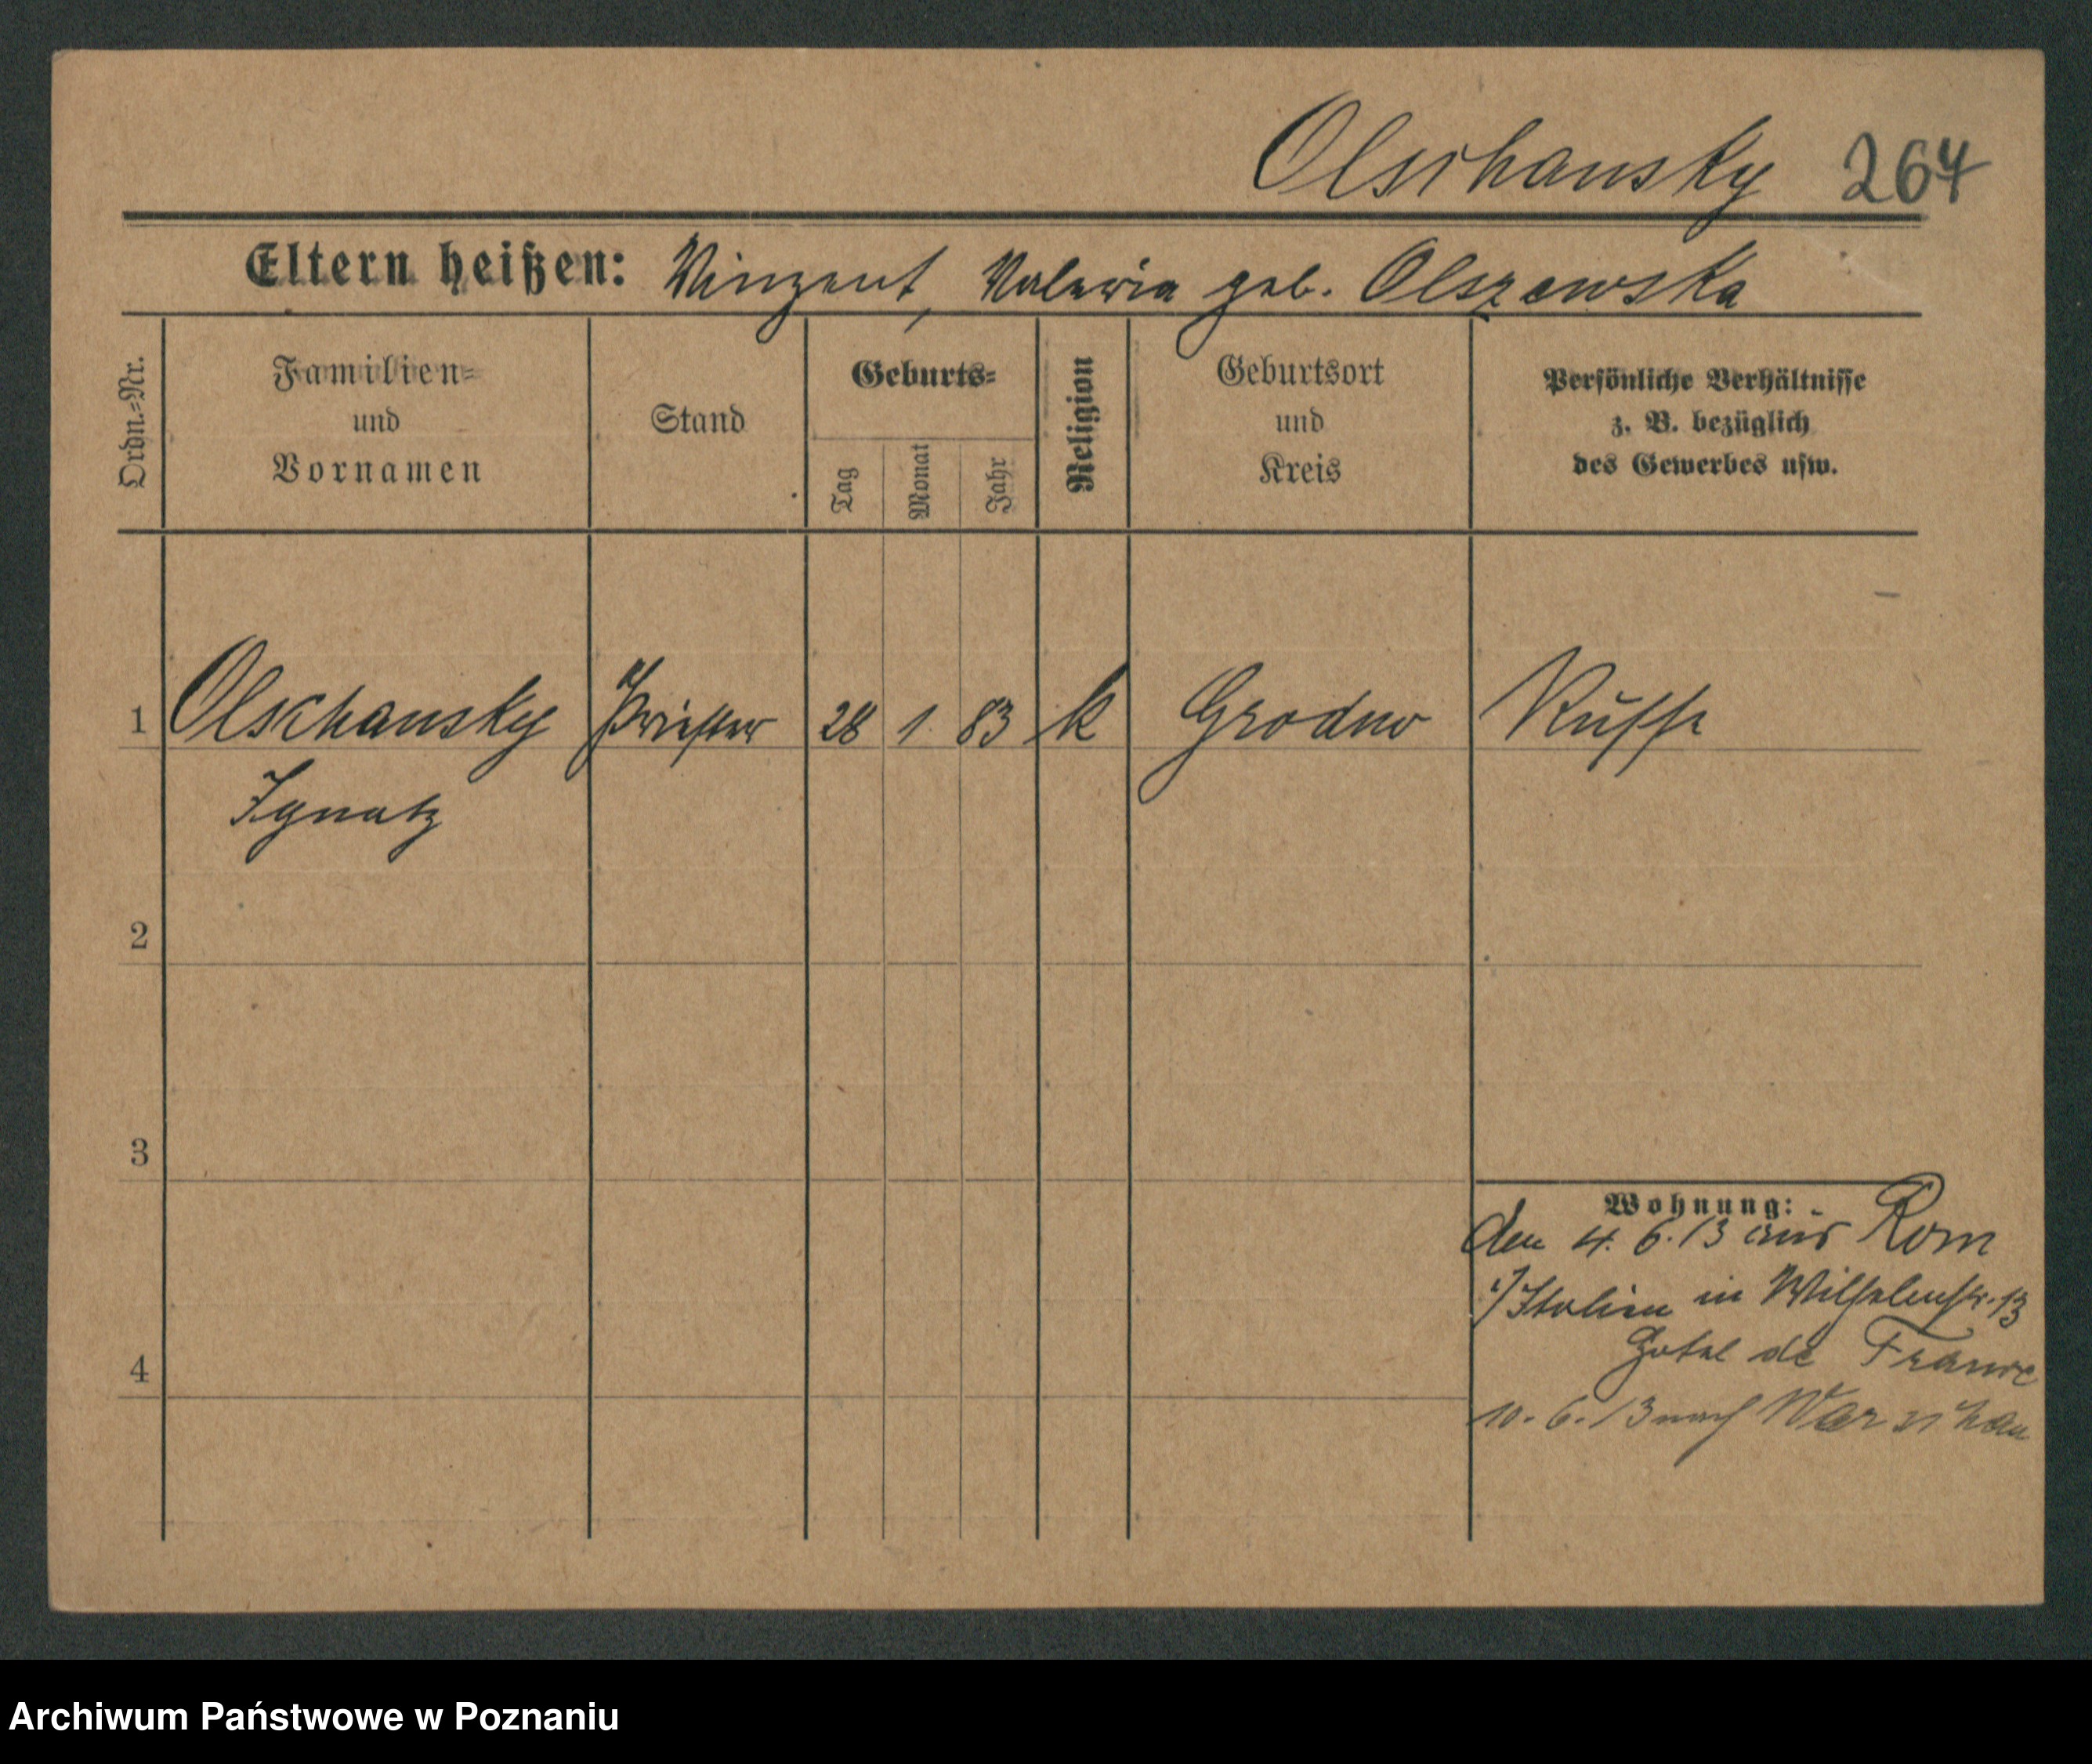 Olschansky 264
Eltern heißen: Vinzent, Valeria geb. Olszewska
Ordn.=Nr.
Familien=
und
Vornamen
Stand
Geburts=
Tag
Monat
Jahr
Religion
Geburtsort
und
Kreis
Persönliche Verhältnisse
z. B. bezüglich
des Gewerbes usw.
1 Olschansky Priester 28 1 83 k Grodno Russe
Ignatz
2
3
Wohnung:
den 4. 6. 13 aus Rom
i/Italien in Wilhelmstr. 13
Hotel de France
4
10. 6. 13 nach Warschau
Archiwum Państwowe w Poznaniu